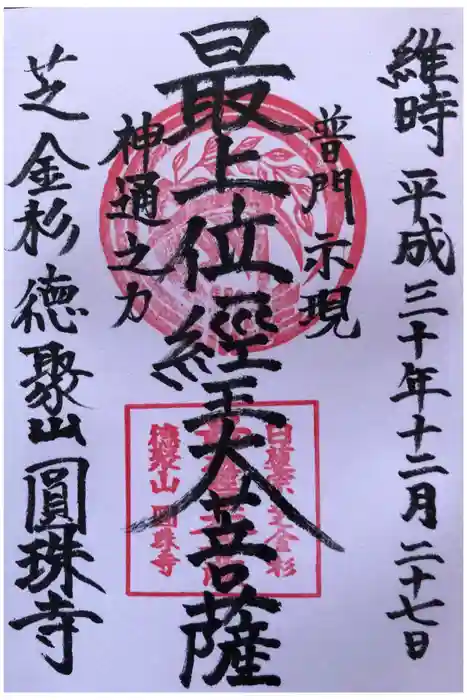 維時 平成三十年十二月二十七日
普門示現
最上位經王大菩薩
神通之力
芝金杉 徳聚山 圓珠寺
芝金杉
徳聚山 圓珠寺